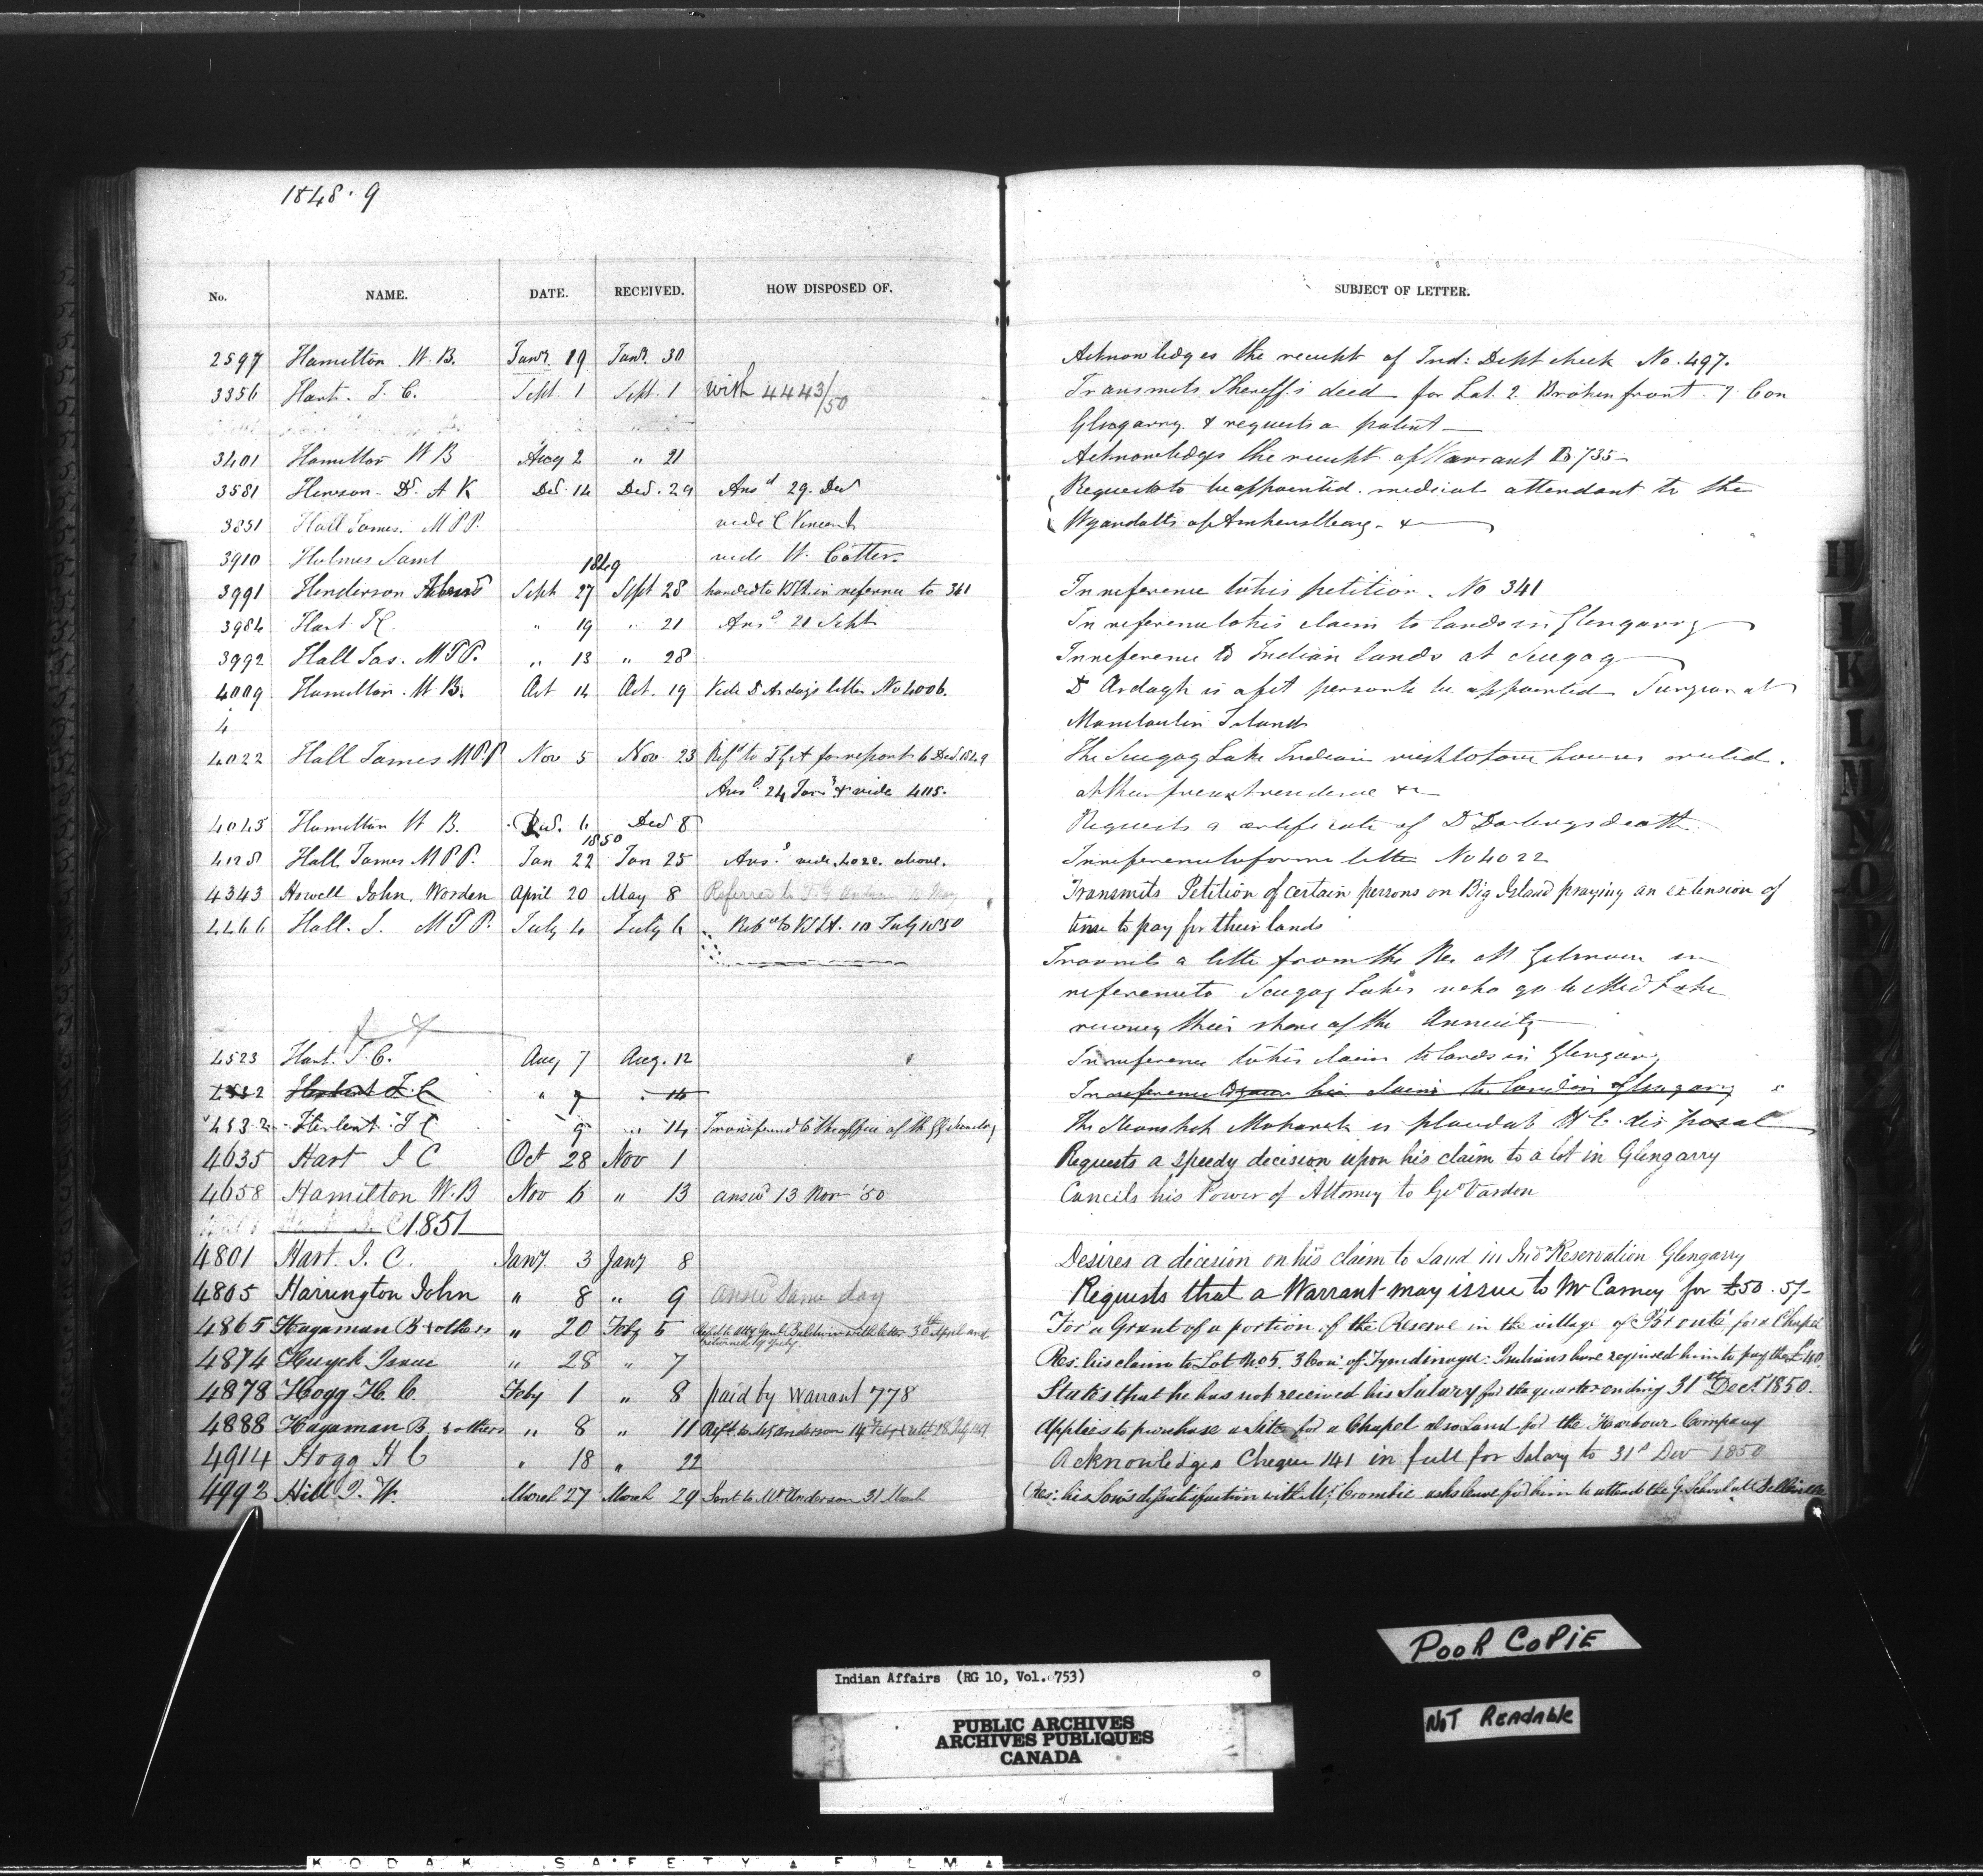 1848.9
No. NAME. DATE. RECEIVED. HOW DISPOSED OF. SUBJECT OF LETTER.
2597 Hamilton W. B. Jany. 19 Jany. 30 Acknowledges the receipt of Ind: Dept check No. 497.
3356 Hart. I. C. Sept. 1 Sept. 1 with 4443/50 Transmits Sheriff's deed for Lot 2 Broken front 7 Con
Glengarry & requests a patent
3401 Hamilton W B Aug 2 " 21 Acknowledges the receipt of Warrant B 735
3581 Henson Dr. A K Dec. 14 Decr. 29 Ansd 29. Decr Requests to be appointed medical attendant to the
3851 Hall James. M P P. vide C Vincent Wyandotts of Amherstburg &
3910 Holmes Saml vide W. Cotter
1849
3991 Henderson Sept 27 Sept 28 handed to in reference to 341 In reference to his petition. No 341
3984 Hart I C. " 19 " 21 Ansd 21 Sept In reference to his claim to lands in Glengarry
3992 Hall Jas. M P P. " 13 " 28 In reference to Indian lands at Scugog
4009 Hamilton. W B. Oct 14 Oct. 19 Vide Dr Ardagh's letter No 4006. Dr Ardagh is a fit person to be appointed Surgeon at
4 Manitoulin Island
4022 Hall James M P. P Nov 5 Nov. 23 Refd to T G A for report 6 Decr. 1849 The Scugog Lake Indians wish to have houses erected.
Ansd. 24 Jany & vide 4115. at their present residence &c
4045 Hamilton W B. Decr. 6 Decr 8 Requests a certificate of Dr Darlings death
1850
4128 Hall James M P P. Jan 22 Jan 25 Ansd. vide 4022 above. In reference to former letter No 4022
4343 Howell John. Worden April 20 May 8 Referred to T. G. 10 May Transmits Petition of certain persons on Big Island praying an extension of
4466 Hall. J. M P P. July 4 July 6 Refd to 10 July 1850 time to pay for their lands
Transmits a letter from the Rev Mr. Gilmour in
reference to Scugog Lakes who go to Mud Lake
receiving their share of the Annuity
4523 Hart. I. C. Aug 7 Aug. 12 In reference to his claim to lands in Glengarry
4532 Herbert I. C " 7 " 14 In reference to his claim to lands in Glengarry
4532 Herbert I C 9 " 14 Transferred to the office of the The is placed at H E. disposal
4635 Hart I C Oct 28 Nov 1 Requests a speedy decision upon his claim to a lot in Glengarry
4658 Hamilton W. B Nov 6 " 13 answd 13 Nov '50 Cancels his Power of Attorney to Geo Vardon
1851
4801 Hart. I. C. Jany. 3 Jany 8 Desires a decision on his claim to Land in Indn Reservation Glengarry
4805 Harrington John " 8 " 9 answd same day Requests that a Warrant may issue to Mr Carney for £50. 5/-
4865 Hagaman B & others " 20 Feby 5 Refd to Atty Genl Baldwin with letter 30th April and For a Grant of a portion of the Reserve in the village of 'Bronté' for a Chapel
returned 19 July.
4874 Huyck Isaac " 28 " 7 Res: his claim to Lot No 5. 3 Con: of Tyendinaga: Indians have required him to pay the £40.
4878 Hogg H. C. Feby 1 " 8 paid by Warrant 778 States that he has not received his Salary for the quarter ending 31st Decr 1850.
4888 Hagaman B. & others " 8 " 11 Refd. to Mr Anderson 14 Feby Applies to purchase a Site for a Chapel also Land for the Harbour Company
4914 Hogg H C " 18 " 22 Acknowledges Cheque 141 in full for Salary to 31st Decr 1850
4992 Hill J. W. March 27 March 29 Sent to Mr Anderson 31 March Res: his Son's dissatisfaction with Mr. Crombie asks leave for him to attend the G. School at Belleville
H
I
K
L
M
N
O
P
Q
POOR COPIE
NOT READABLE
Indian Affairs (RG 10, Vol. 753)
PUBLIC ARCHIVES
ARCHIVES PUBLIQUES
CANADA
KODAK SAFETY FILM